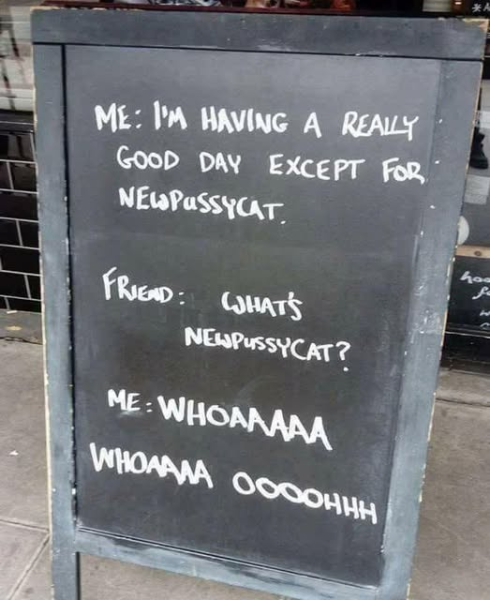 ME: I'M HAVING A REALLY
GOOD DAY EXCEPT FOR
NEWPUSSYCAT.
FRIEND: WHAT'S
NEWPUSSYCAT?
ME: WHOAAAAA
WHOAAAA OOOOHHH